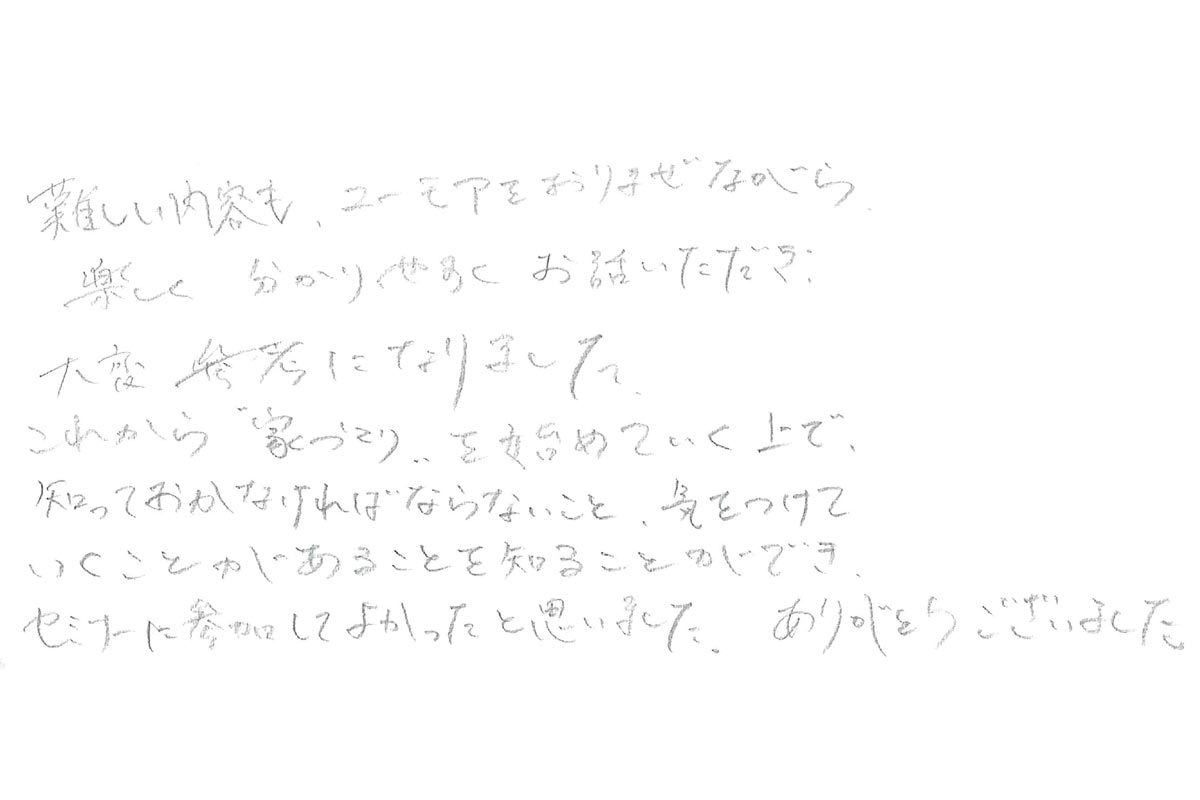 難しい内容も、ユーモアをおりまぜながら、
楽しく 分かりやすく お話いただき、
大変 参考になりました。
これから"家づくり"を始めていく上で、
知っておかなければならないこと、気をつけて
いくことがあることを知ることができ、
セミナーに参加してよかったと思いました。 ありがとうございました。